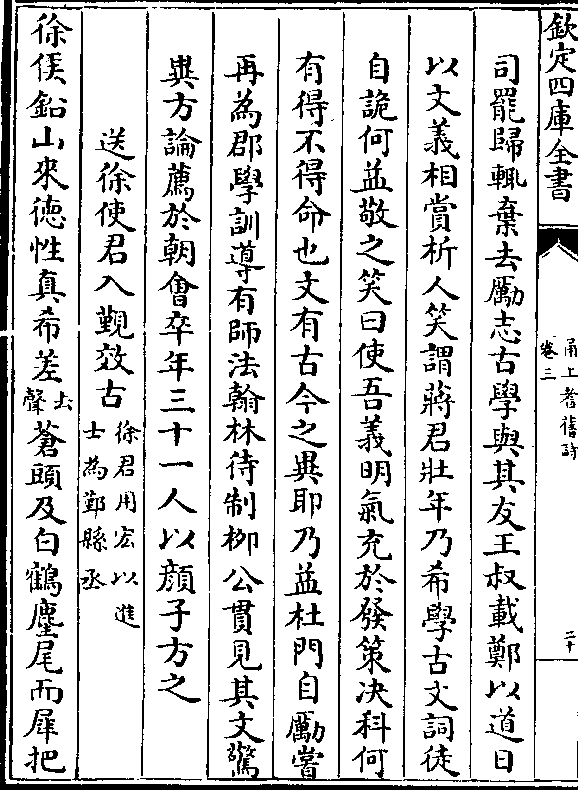 欽定四庫全書
甬上耆舊詩
卷三
二十
司罷歸輒棄去勵志古學與其友王叔載鄭以道日
以文義相賞析人笑謂蔣君壯年乃希學古文詞徒
自詭何益敬之笑曰使吾義明氣充於發策决科何
有得不得命也文有古今之異耶乃益杜門自勵嘗
再為郡學訓導有師法翰林待制柳公貫見其文驚
異方論薦於朝會卒年三十一人以顔子方之
送徐使君入覲效古
徐君用宏以進
士為鄞縣丞
徐侯鉛山來德性真希差
去
聲
蒼頭及白鶴麈尾而犀把